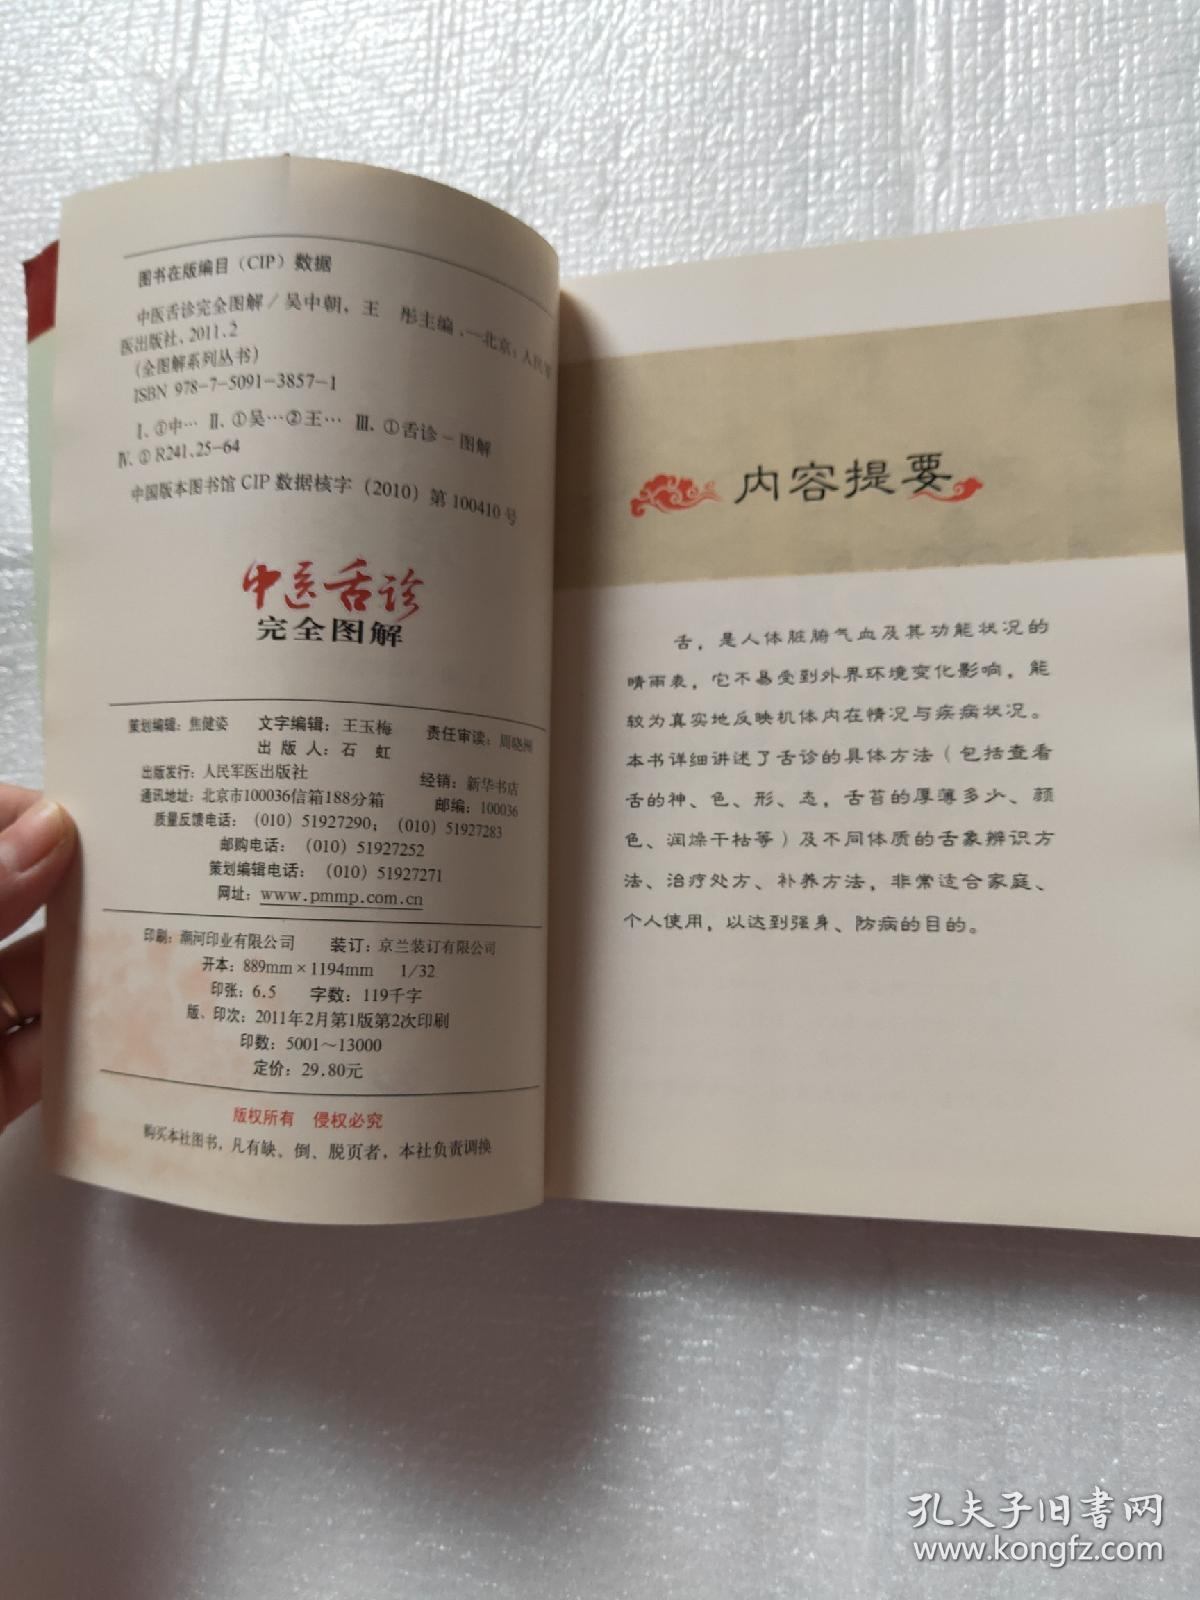 图书在版编目（CIP）数据
中医舌诊完全图解／吴中朝，王　彤主编．—北京：人民军
医出版社，2011.2
（全图解系列丛书）
ISBN 978-7-5091-3857-1
Ⅰ.①中… Ⅱ.①吴…②王… Ⅲ.①舌诊－图解
Ⅳ.①R241.25-64
中国版本图书馆CIP数据核字（2010）第100410号
中医舌诊
完全图解
策划编辑：焦健姿　文字编辑：王玉梅　责任审读：周晓洲
出 版 人：石　虹
出版发行：人民军医出版社　经销：新华书店
通讯地址：北京市100036信箱188分箱　邮编：100036
质量反馈电话：（010）51927290；（010）51927283
邮购电话：（010）51927252
策划编辑电话：（010）51927271
网址：www.pmmp.com.cn
印刷：潮河印业有限公司　装订：京兰装订有限公司
开本：889mm×1194mm　1/32
印张：6.5　字数：119千字
版、印次：2011年2月第1版第2次印刷
印数：5001～13000
定价：29.80元
版权所有　侵权必究
购买本社图书，凡有缺、倒、脱页者，本社负责调换
内容提要
舌，是人体脏腑气血及其功能状况的
晴雨表，它不易受到外界环境变化影响，能
较为真实地反映机体内在情况与疾病状况。
本书详细讲述了舌诊的具体方法（包括查看
舌的神、色、形、态，舌苔的厚薄多少、颜
色、润燥干枯等）及不同体质的舌象辨识方
法、治疗处方、补养方法，非常适合家庭、
个人使用，以达到强身、防病的目的。
孔夫子旧书网
www.kongfz.com